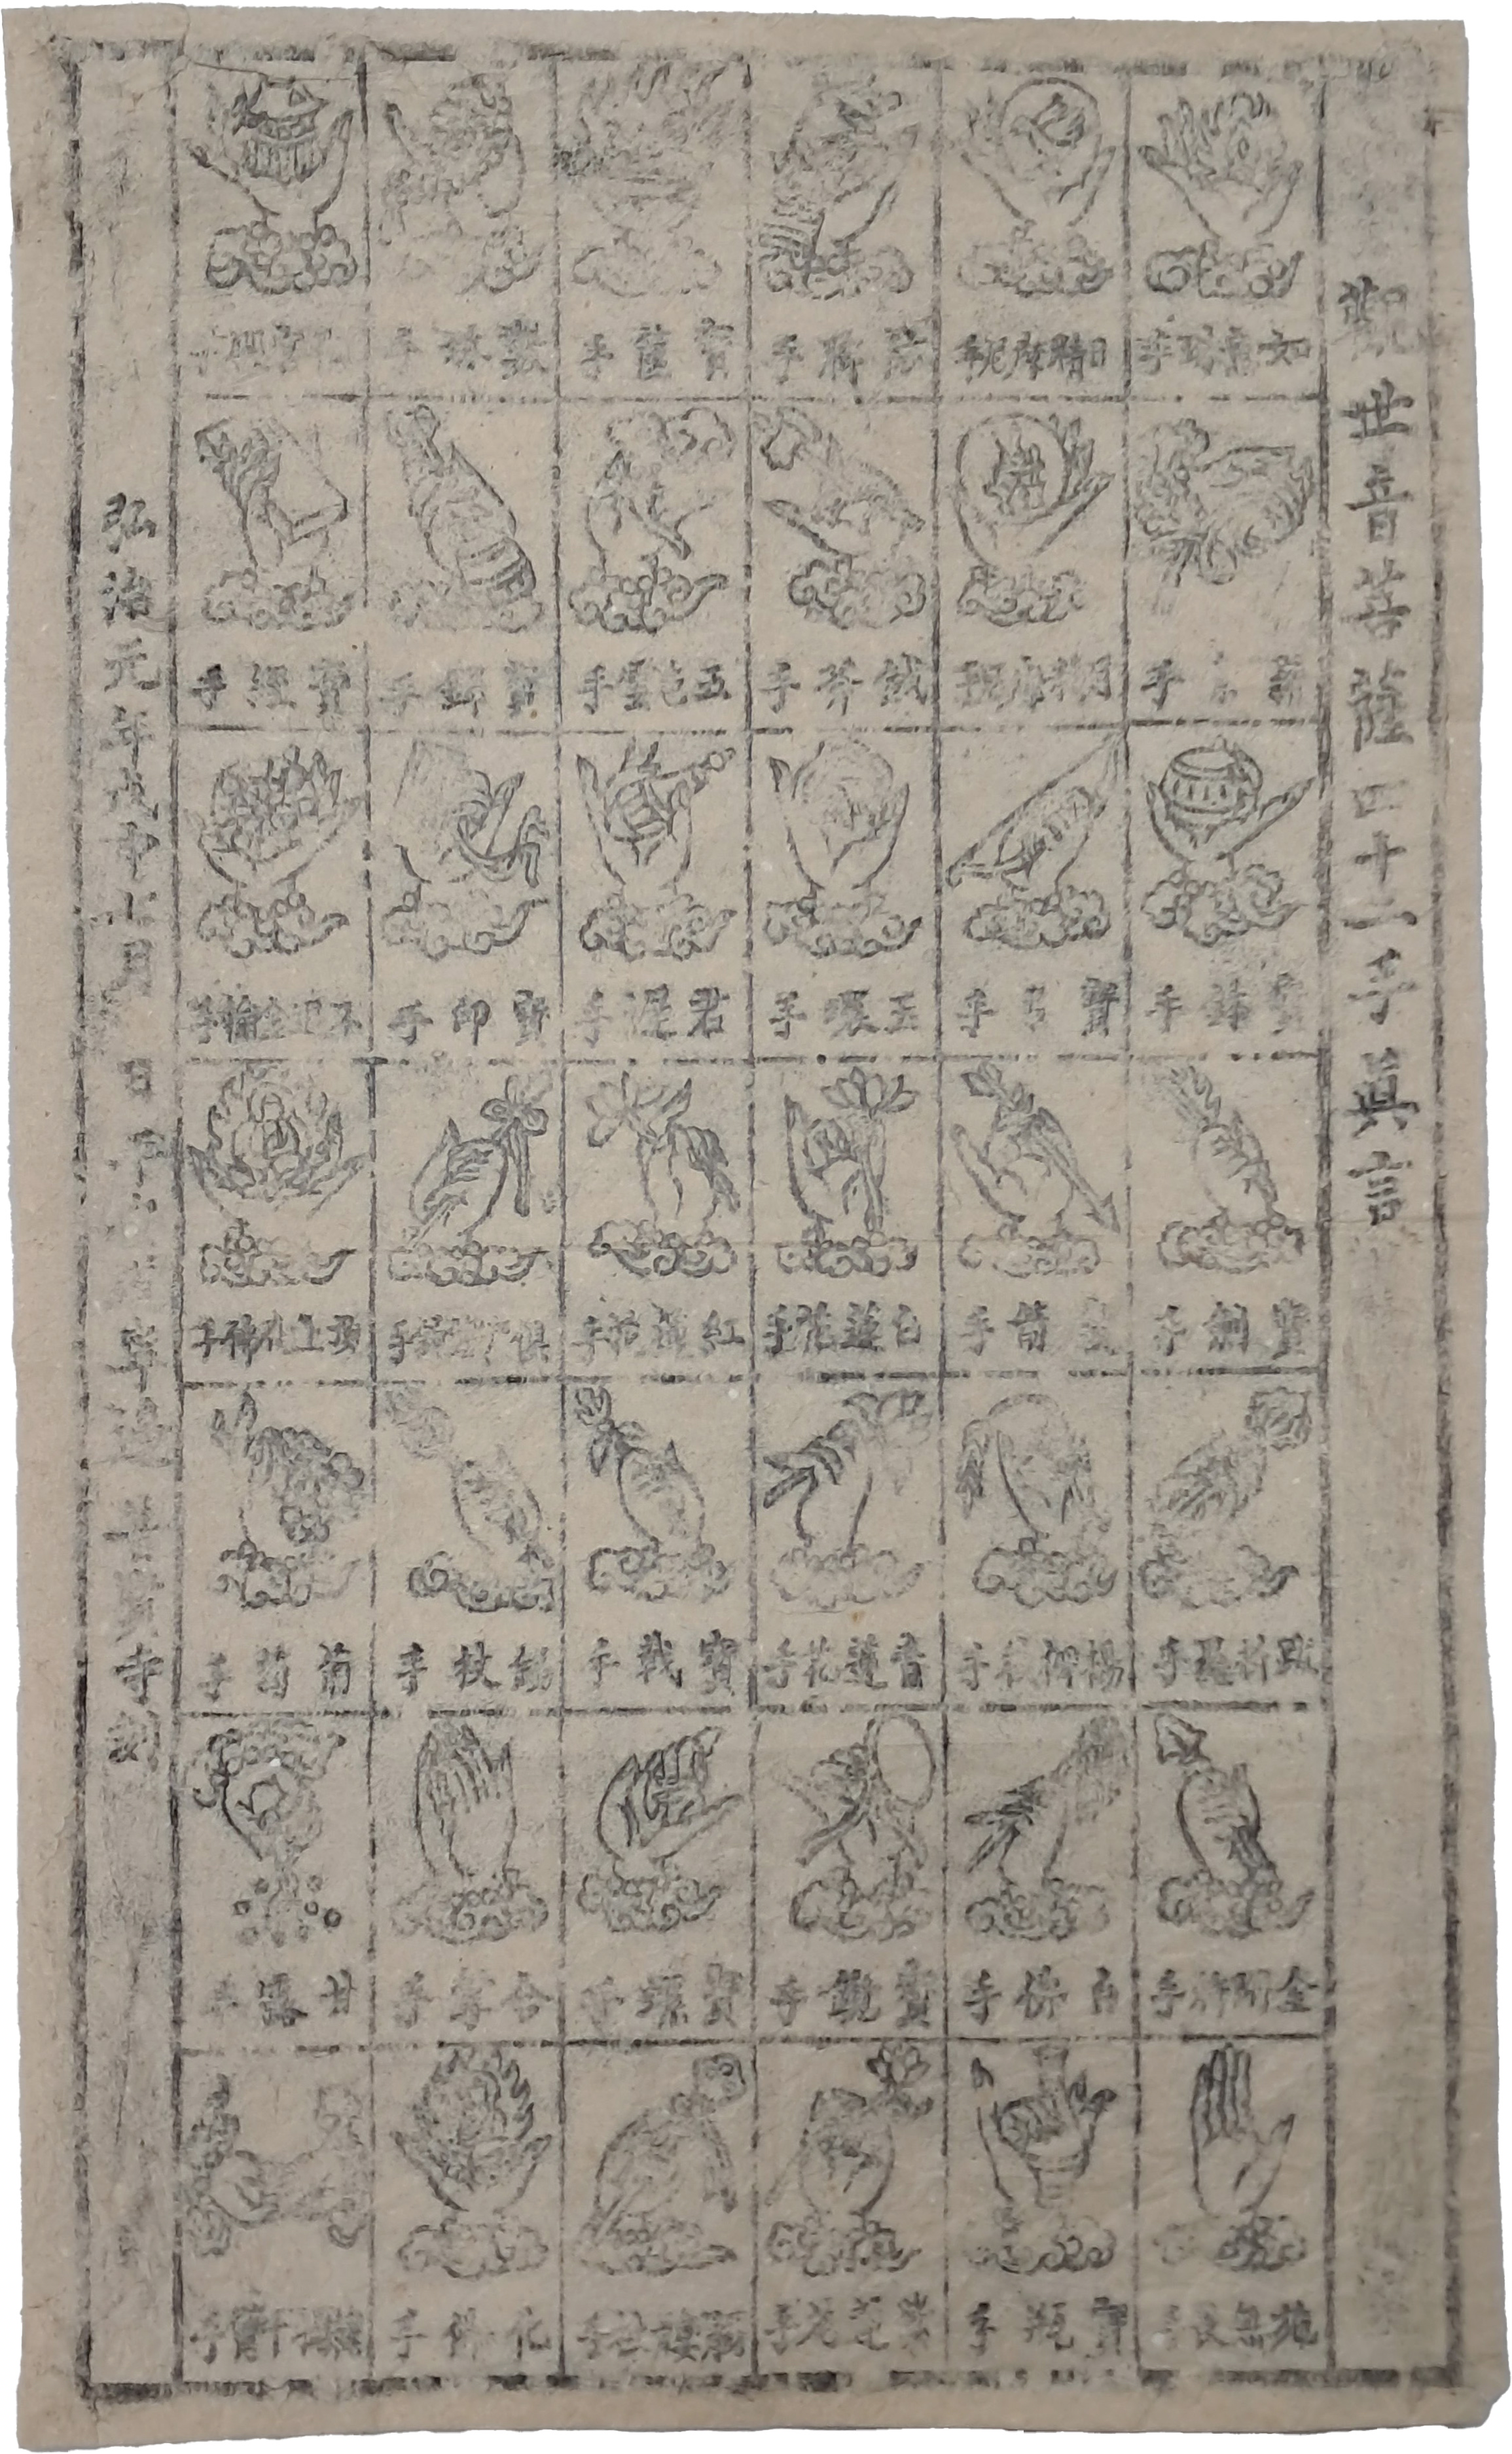 觀世音菩薩四十二手眞言
如意珠手
日精摩尼手
牌手
寶篋手
數珠手
化宮殿手
羂索手
月精摩尼手
鉞斧手
五色雲手
寶鐸手
寶經手
寶鉢手
寶弓手
玉環手
君遲手
寶印手
不退金輪手
寶劒手
寶箭手
白蓮花手
紅蓮花手
俱尸鐵鉤手
頂上化佛手
跋折羅手
楊柳枝手
靑蓮花手
寶戟手
錫杖手
葡萄手
金剛杵手
白拂手
寶鏡手
寶螺手
合掌手
甘露手
施無畏手
寶甁手
紫蓮花手
髑髏杖手
化佛手
千臂手
弘治元年戊申七月 日 寺刻